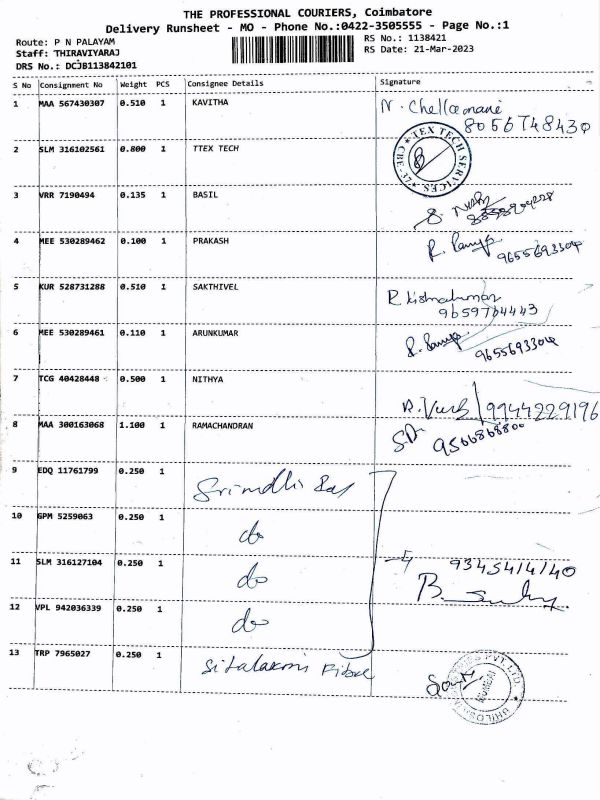 THE PROFESSIONAL COURIERS, Coimbatore
Delivery Runsheet - MO - Phone No.:0422-3505555 - Page No.:1
Route: P N PALAYAM
Staff: THIRAVIYARAJ
DRS No.: DCJB113842101
RS No.: 1138421
RS Date: 21-Mar-2023
S No Consignment No Weight PCS Consignee Details Signature
1 MAA 567430307 0.510 1 KAVITHA
8056748430
2 SLM 316102561 0.800 1 TTEX TECH
TEX TECH SERVICES
CBE-47.
3 VRR 7190494 0.135 1 BASIL
4 MEE 530289462 0.100 1 PRAKASH
9655693304
5 KUR 528731288 0.510 1 SAKTHIVEL
9659764443
6 MEE 530289461 0.110 1 ARUNKUMAR
9655693304
7 TCG 40428448 0.500 1 NITHYA
9944229196
8 MAA 300163068 1.100 1 RAMACHANDRAN
9 EDQ 11761799 0.250 1
10 GPM 5259063 0.250 1 do
11 SLM 316127104 0.250 1 do
9345414140
12 VPL 942036339 0.250 1 do
13 TRP 7965027 0.250 1